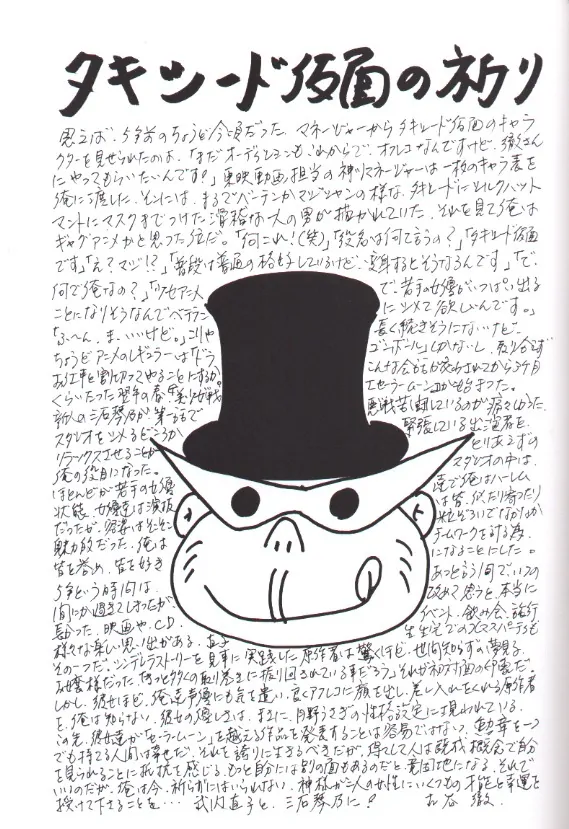 タキシード仮面の祈り
思えば、5年前のちょうど今頃だった、マネージャーからタキシード仮面のキャラ
クターを見せられたのは。「まだオーディションもこれからで、オフレコなんですけど、徹さん
にやってもらいたいんです。」東映動画担当の神リマネージャーは一枚のキャラ表を
俺に渡した。そこには、まるでバーテンかマジシャンの様な、タキシードにシルクハット
マントにマスクまでつけた滑稽な一人の男が描かれていた。それを見て俺は
ギャグアニメかと思った位だ。「何これ!(笑)」「役名は何て言うの?」「タキシード仮面
です」「え?マジ!?」「普段は普通の格好しているけど、変身するとそうなるんです」「で、
何で俺なの?」「ワセアニメ で、若手の女優がいっぱい出る
ことになりそうなんでベテラン にシメて欲しいんです。」
「ふ〜ん、ま、いいけど。」こりゃ 長く続きそうにないけど
ちょうどアニメのレギュラーは「ドラ ゴンボール」しかないし、取り合えず
お仕事と割り切ってやることにするか。 こんな会話が交わされてから3ヶ月
くらいたった翌年の春 セーラームーン」が始まった。
新人の三石琴乃が第一話で 悪戦苦闘しているのが痛々しかった。
スタジオをシメるどころか 緊張している出演者を、
リラックスさせることが とりあえずの
俺の役目になった。 スタジオの中は、
ほとんどが若手の女優 達で俺はハーレム
状態、女優達は演技 は皆、似たり寄ったり
だったが、容姿はそこそこ 粒ぞろいでなかなか
魅力的だった。俺は チームワークを計る為、
皆を誉め、皆を好き になることにした。
5年という時間は、 あっという間で、いつの
間にか過ぎてしまったが、 改めて思うと、本当に
長かった。映画や、CD、 イベント、飲み会、旅行
様々な楽しい思い出がある。直子 先生宅でのXマスパーティも
その一つだ。シンデレラストーリーを見事に実践した原作者は驚くほど、世間知らずの夢見る
お嬢様だった。きっと多くの取り巻きに振り回されている事だろう。それが初対面の印象だ。
しかし、彼女ほど、俺達声優にも気を遣い、良くアフレコに顔を出し、差し入れをくれる原作者
を、俺は知らない。彼女の優しさは、まさに、月野うさぎの性格設定に現われている。
この先、彼女達が「セーラームーン」を越える作品を発表することは容易ではない。勲章を一つ
でも持てる人間は幸せだ。それを誇りに生きるべきだが、得てして人は既成概念で自分
を見られることに抵抗を感じる。もっと自分には別の面もあるのだと意固地になる。それで
いいのだが、俺は今、祈らずにはいられない。神様が二人の女性にいくつもの才能と幸運を
授けて下さることを… 武内直子と、三石琴乃に! 古谷 徹.